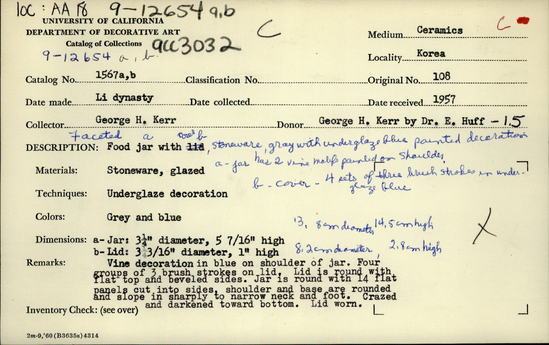 loc: AA 18 9-12654 a,b
UNIVERSITY OF CALIFORNIA
DEPARTMENT OF DECORATIVE ART
Catalog of Collections
9-12654 a, b
9CC3032
C
Medium Ceramics
C
Locality Korea
Catalog No. 1567a,b Classification No. Original No. 108
Date made Li dynasty Date collected Date received 1957
Collector George H. Kerr Donor George H. Kerr by Dr. E. Huff - 15
Faceted a b
DESCRIPTION: Food jar with lid, stoneware, gray with underglaze blue painted decoration
a - jar has 2 vine motifs painted on shoulder
b - cover - 4 sets of three brush strokes in under-
glaze blue
Materials: Stoneware, glazed
Techniques: Underglaze decoration
Colors: Grey and blue
13.8cm diameter 14.5cm high
Dimensions: a-Jar: 3½" diameter, 5 7/16" high
b-Lid: 3 3/16" diameter, 1" high
8.2cm diameter 2.8cm high
X
Remarks: Vine decoration in blue on shoulder of jar. Four
groups of 3 brush strokes on lid. Lid is round with
flat top and beveled sides. Jar is round with 14 flat
panels cut into sides, shoulder and base are rounded
and slope in sharply to narrow neck and foot. Crazed
and darkened toward bottom. Lid worn.
Inventory Check: (see over)
2m-9,'60 (B3635s) 4314